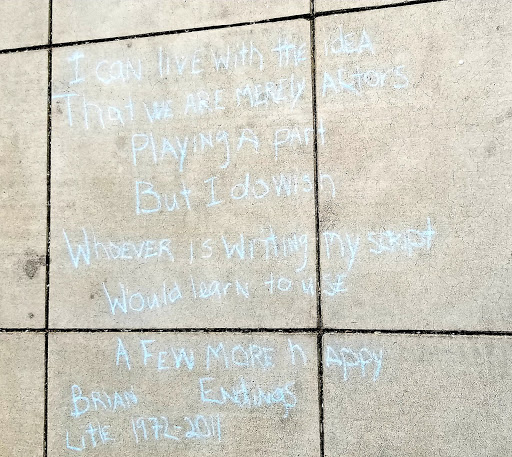 I CAN LIVE WITH the IDEA
That WE ARE MERELY ACTORS
PlAyING A part
But I do WISh
WHOEVER IS WRItING my script
Would learn to use
A FEW MORE hAppy
BRIAN ENdINGS
LItlE 1972-2011